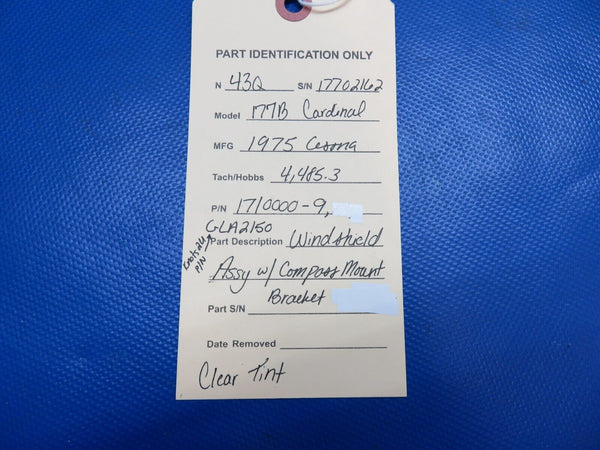 PART IDENTIFICATION ONLY
N 43Q S/N 17702162
Model 177B Cardinal
MFG 1975 Cessna
Tach/Hobbs 4,485.3
P/N 1710000-9,
GLA2150
Part Description Windshield
P/N
Assy w/ Compass Mount
Bracket
Part S/N
Date Removed
Clear Tint